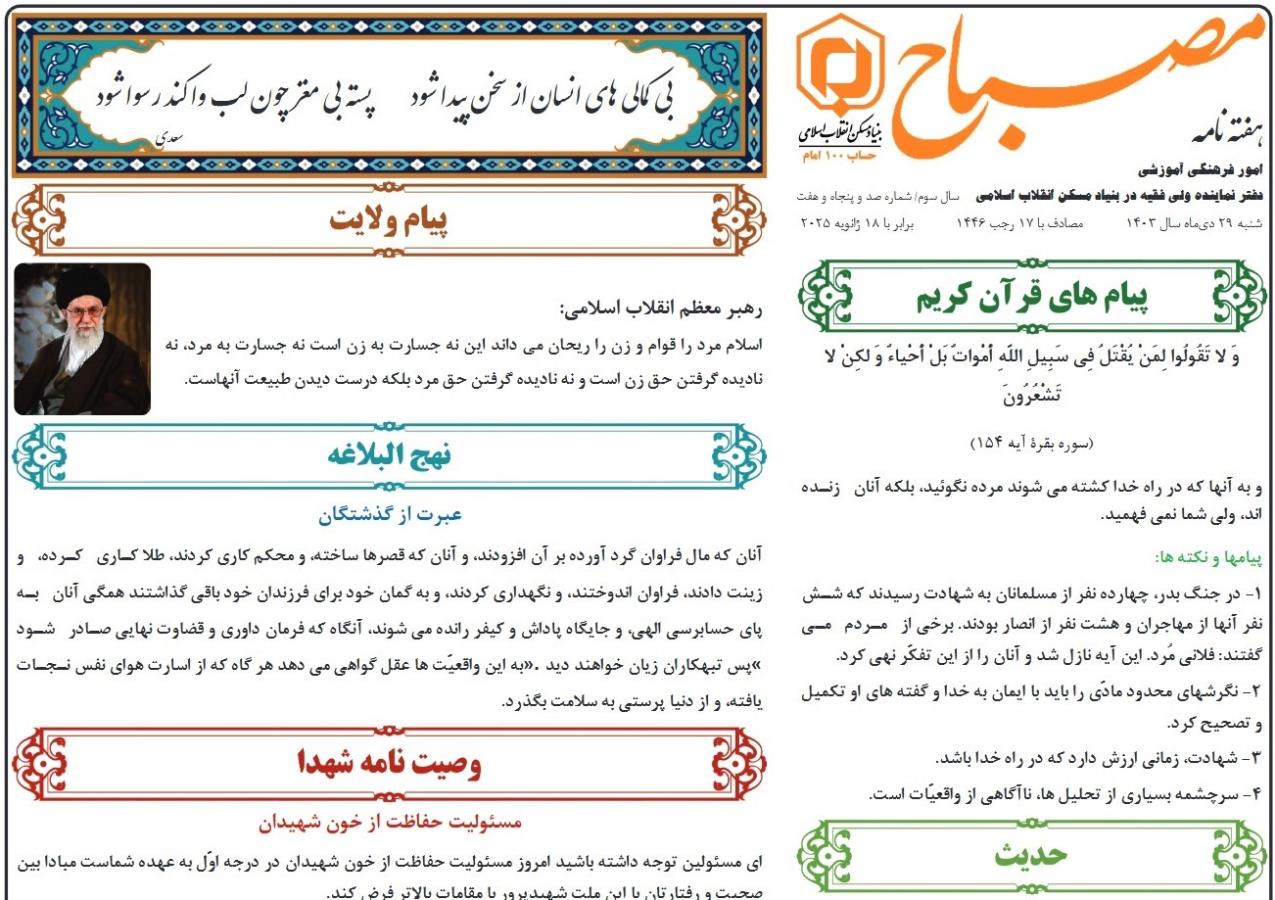 هفته نامه
مصباح
بنیاد مسکن انقلاب اسلامی
حساب ۱۰۰ امام
امور فرهنگی آموزشی
دفتر نماینده ولی فقیه در بنیاد مسکن انقلاب اسلامی سال سوم/ شماره صد و پنجاه و هفت
شنبه ۲۹ دی‌ماه سال ۱۴۰۳ مصادف با ۱۷ رجب ۱۴۴۶ برابر با ۱۸ ژانویه ۲۰۲۵
پیام های قرآن کریم
وَ لا تَقُولُوا لِمَنْ یُقْتَلُ فِی سَبِیلِ اللَّهِ أَمْواتٌ بَلْ أَحْیاءٌ وَ لکِنْ لا
تَشْعُرُونَ
(سوره بقرۀ آیه ۱۵۴)
و به آنها که در راه خدا کشته می شوند مرده نگوئید، بلکه آنان زنـده
اند، ولی شما نمی فهمید.
پیامها و نکته ها:
۱- در جنگ بدر، چهارده نفر از مسلمانان به شهادت رسیدند که شـش
نفر آنها از مهاجران و هشت نفر از انصار بودند. برخی از مـردم مـی
گفتند: فلانی مُرد. این آیه نازل شد و آنان را از این تفکّر نهی کرد.
۲- نگرشهای محدود مادّی را باید با ایمان به خدا و گفته های او تکمیل
و تصحیح کرد.
۳- شهادت، زمانی ارزش دارد که در راه خدا باشد.
۴- سرچشمه بسیاری از تحلیل ها، ناآگاهی از واقعیّات است.
حدیث
بی کمالی های انسان از سخن پیدا شود پسته بی مغز چون لب وا کند رسوا شود
سعدی
پیام ولایت
رهبر معظم انقلاب اسلامی:
اسلام مرد را قوام و زن را ریحان می داند این نه جسارت به زن است نه جسارت به مرد، نه
نادیده گرفتن حق زن است و نه نادیده گرفتن حق مرد بلکه درست دیدن طبیعت آنهاست.
نهج البلاغه
عبرت از گذشتگان
آنان که مال فراوان گرد آورده بر آن افزودند، و آنان که قصرها ساخته، و محکم کاری کردند، طلا کـاری کـرده، و
زینت دادند، فراوان اندوختند، و نگهداری کردند، و به گمان خود برای فرزندان خود باقی گذاشتند همگی آنان بـه
پای حسابرسی الهی، و جایگاه پاداش و کیفر رانده می شوند، آنگاه که فرمان داوری و قضاوت نهایی صـادر شـود
»پس تبهکاران زیان خواهند دید .«به این واقعیّت ها عقل گواهی می دهد هر گاه که از اسارت هوای نفس نـجـات
یافته، و از دنیا پرستی به سلامت بگذرد.
وصیت نامه شهدا
مسئولیت حفاظت از خون شهیدان
ای مسئولین توجه داشته باشید امروز مسئولیت حفاظت از خون شهیدان در درجه اوّل به عهده شماست مبادا بین
صحبت و رفتارتان با این ملت شهیدپرور با مقامات بالاتر فرض کند.